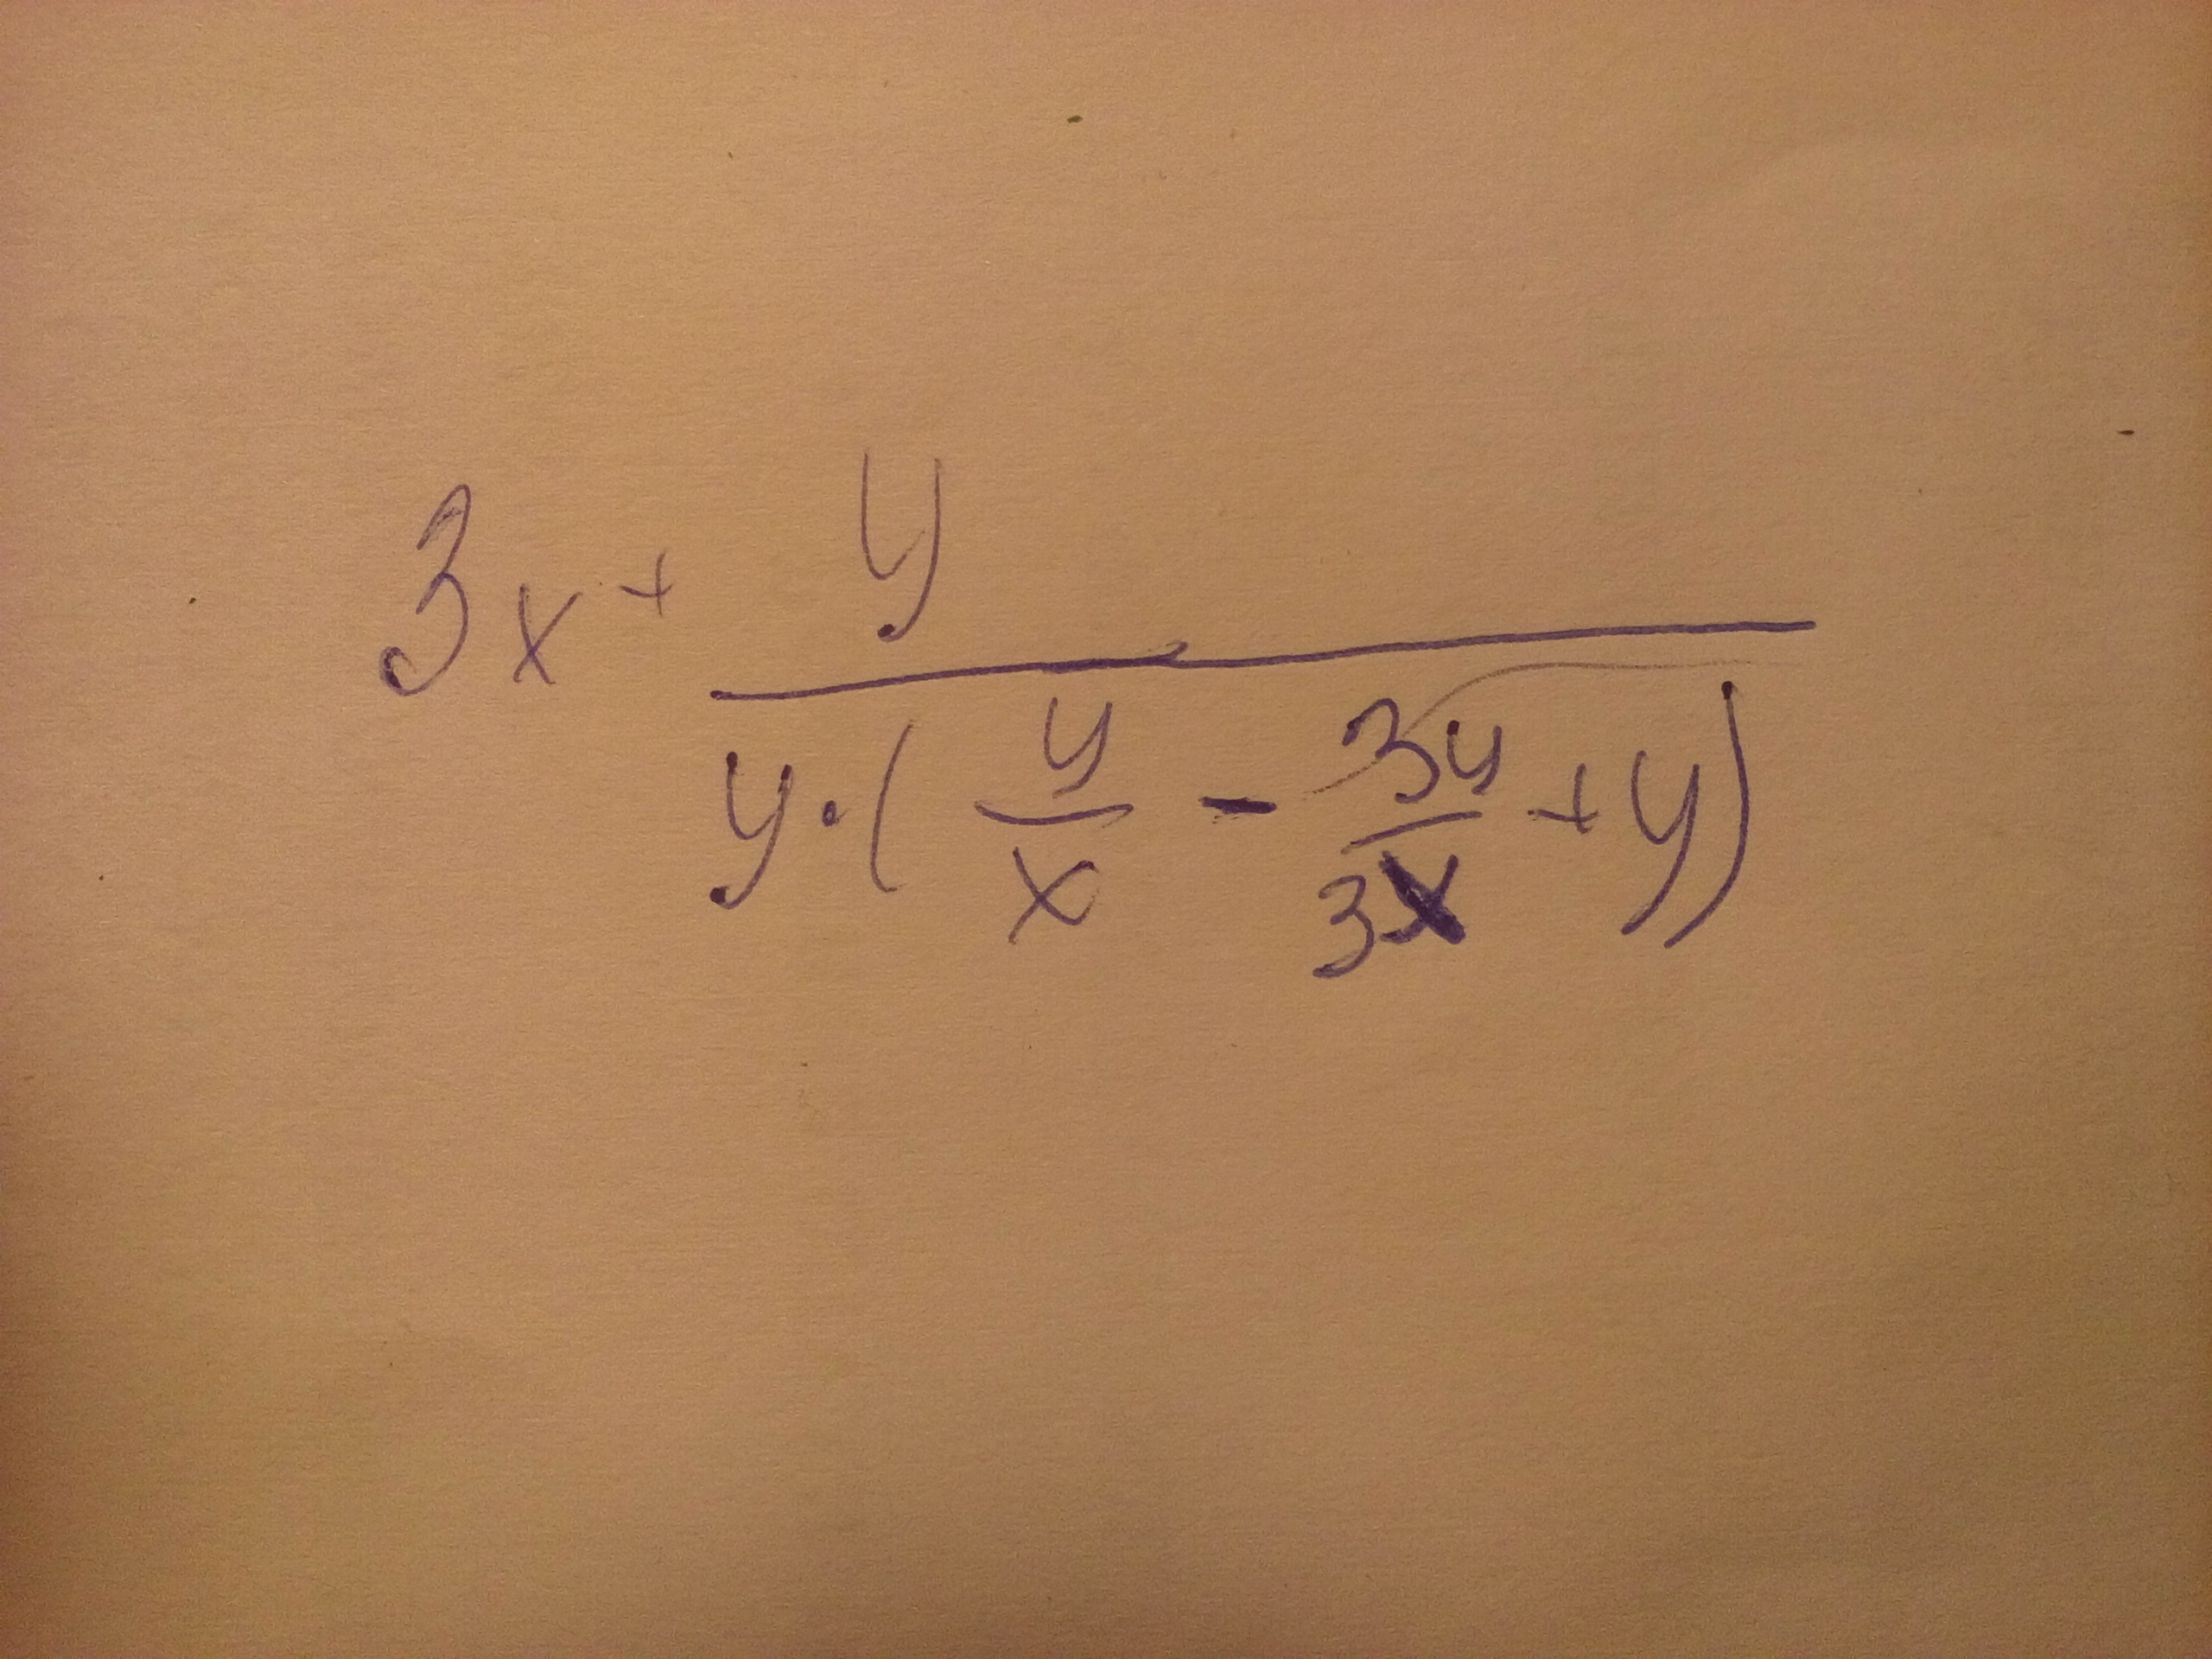 3x + y
y · ( y/x - 3y/3x + y)